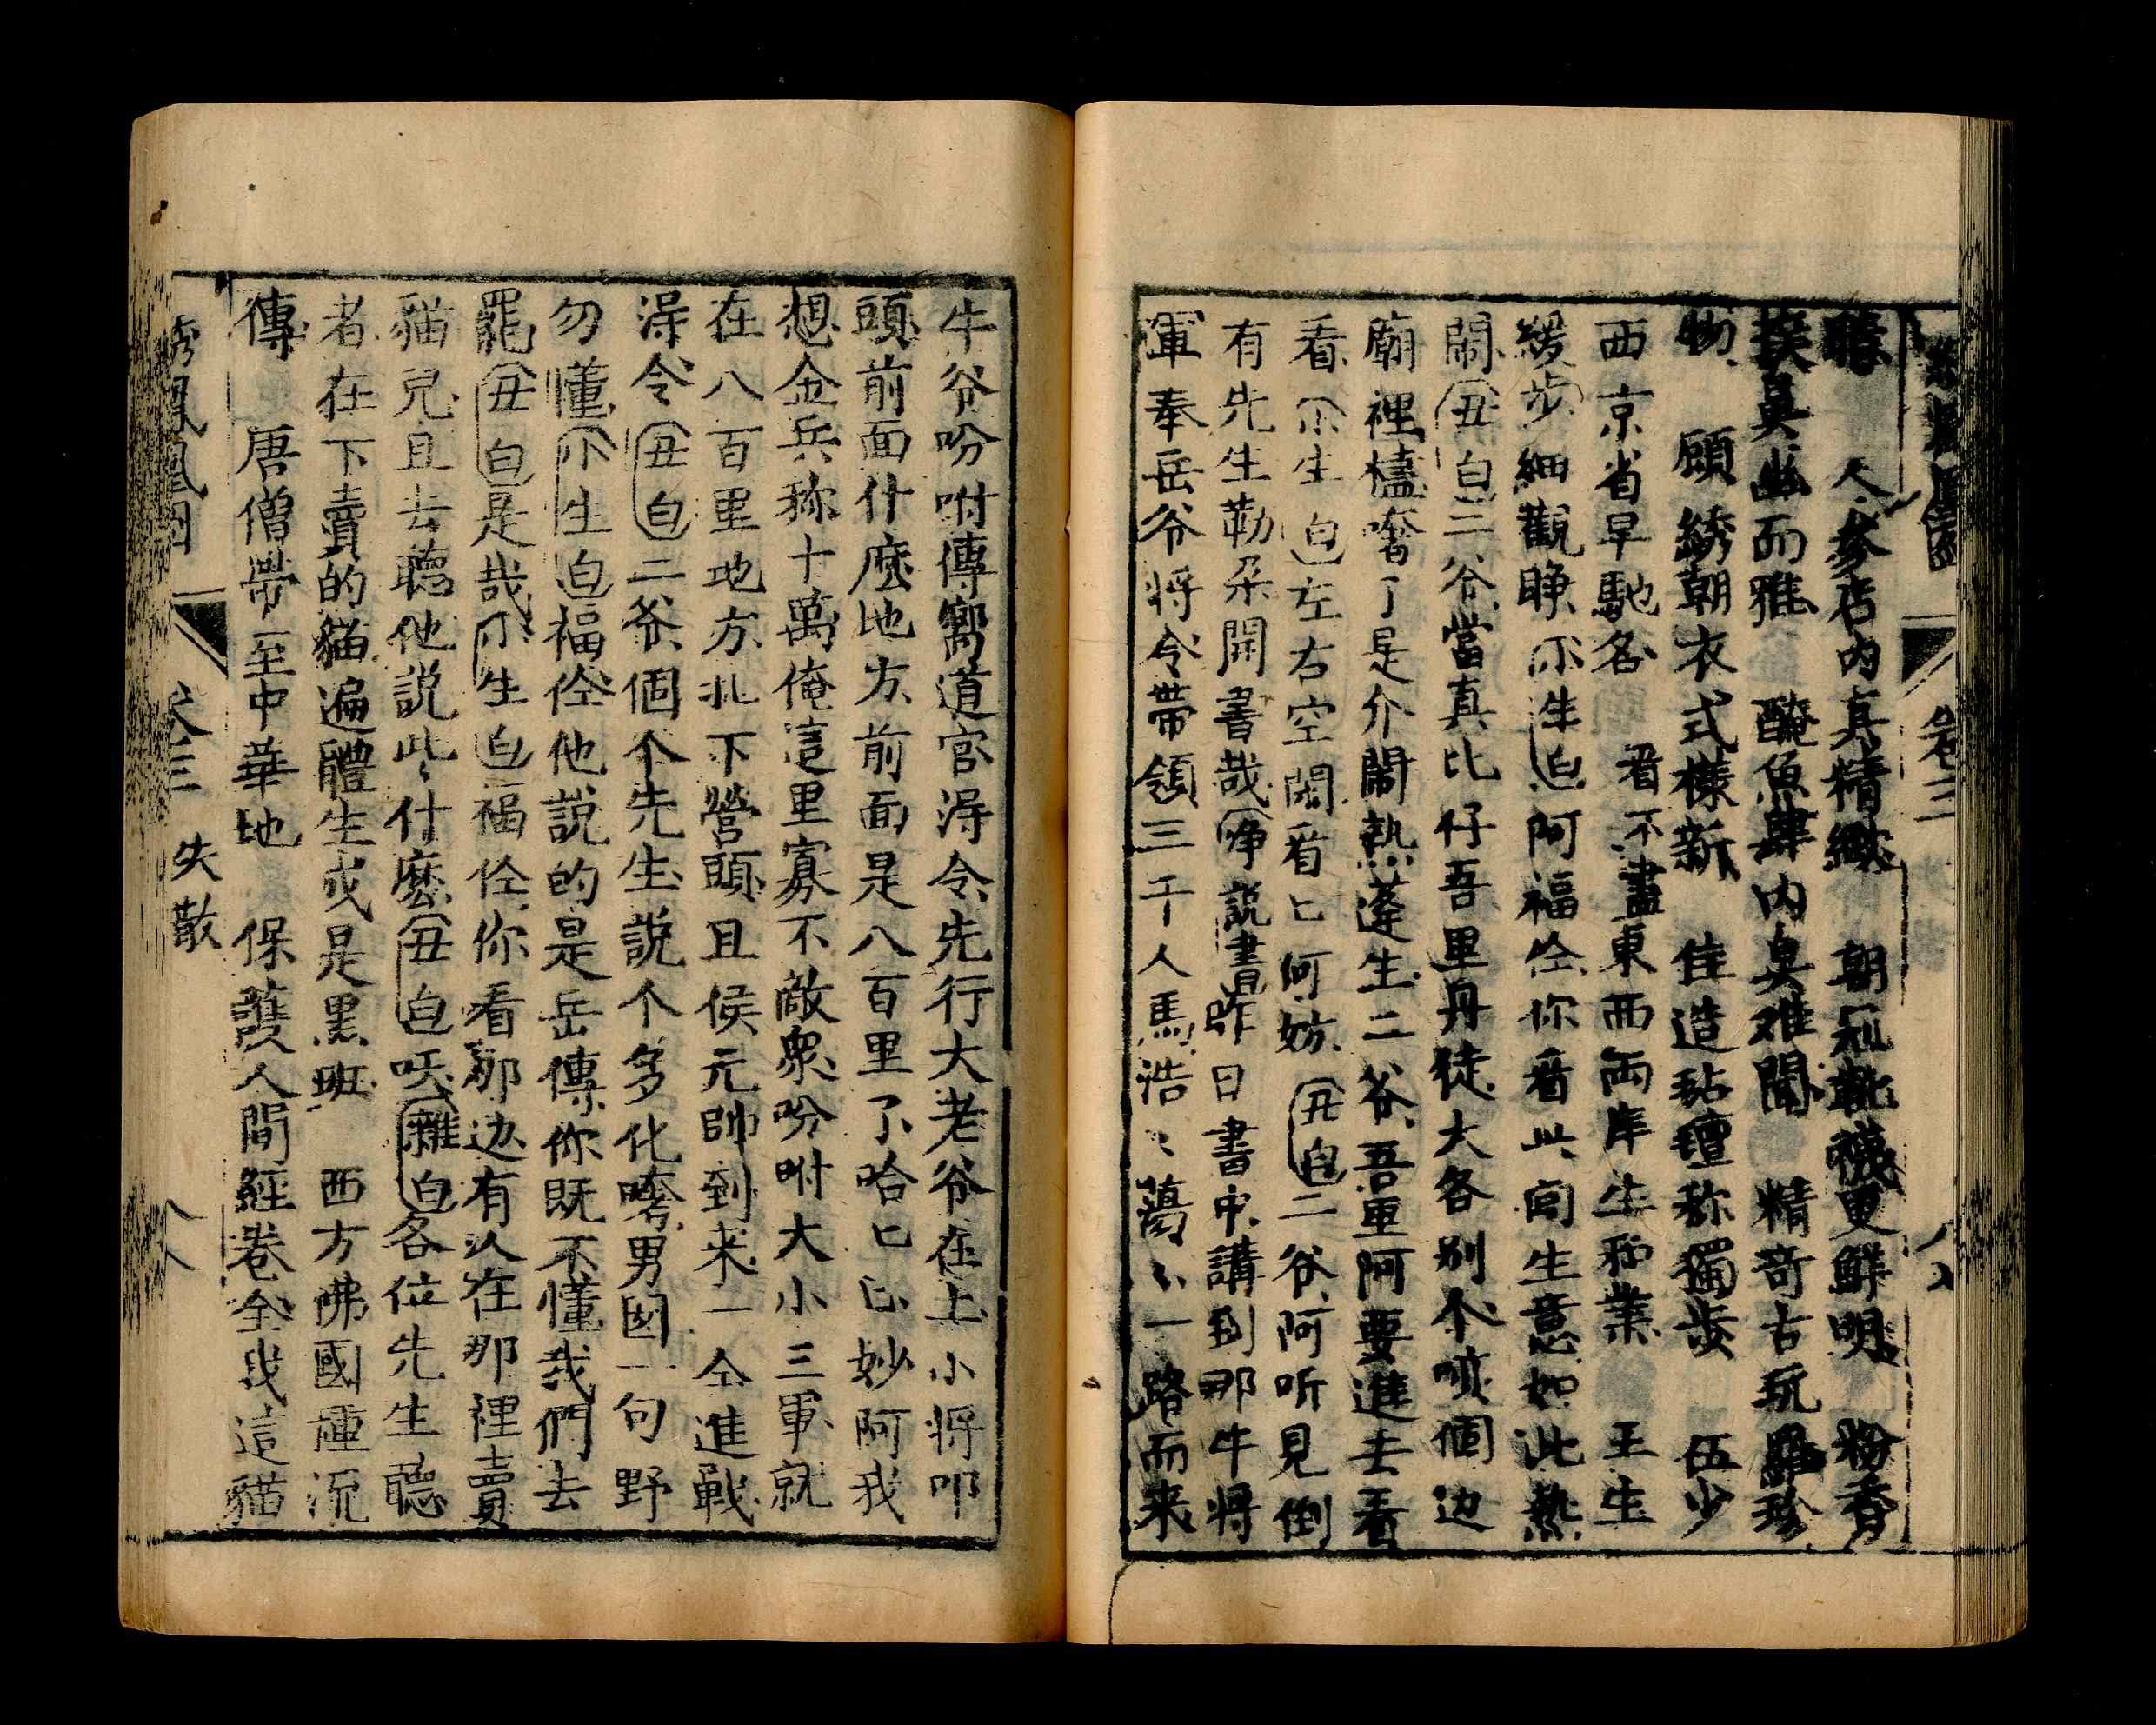 卷三
人參店内真精緻 朝冠靴襪更鮮明 粉香
臭幽而雅 醃魚肆内臭难聞 精奇古玩 珍
物 顧綉朝衣式樣新 佳造 称獨步 伍少
西京省早馳名 看不盡東西両岸生和業 王生
緩步細觀睁 小生白 阿福伫你看此间生意如此熱
閙 丑白 二爷當真比仔吾里丹徒大各别个嘖個边
廟裡檯嗱了是介閙熱蓬生二爷吾里阿要進去看
看 小生白 左右空閑看匕何妨 丑白 二爷阿听見倒
有先生勒朶開書哉 净說書 昨日書中講到那牛將
軍奉岳爷將令帶領三千人馬浩〻蕩〻一路而来
牛爷吩咐傳嚮道官淂令先行大老爷在上小將叩
頭前面什麽地方前面是八百里了哈匕匕妙阿我
想金兵称十萬俺這里寡不敵衆吩咐大小三軍就
在八百里地方扎下營頭且侯元帥到来一仝進戰
淂令 丑白 二爷個个先生說个多化嗱男囡一句野
勿懂 小生白 福伫他說的是岳傳你既不懂我們去
罷 丑白 是哉 小生白 福伫你看那边有人在那裡賣
貓兒且去聽他説此什麽 丑白 呒 雜白 各位先生聽
者在下賣的貓遍體生或是黑班 西方佛國種流
傳 唐僧帶至中華地 保護人間經卷全我這貓
綉鳳凰図 卷三 失散 八